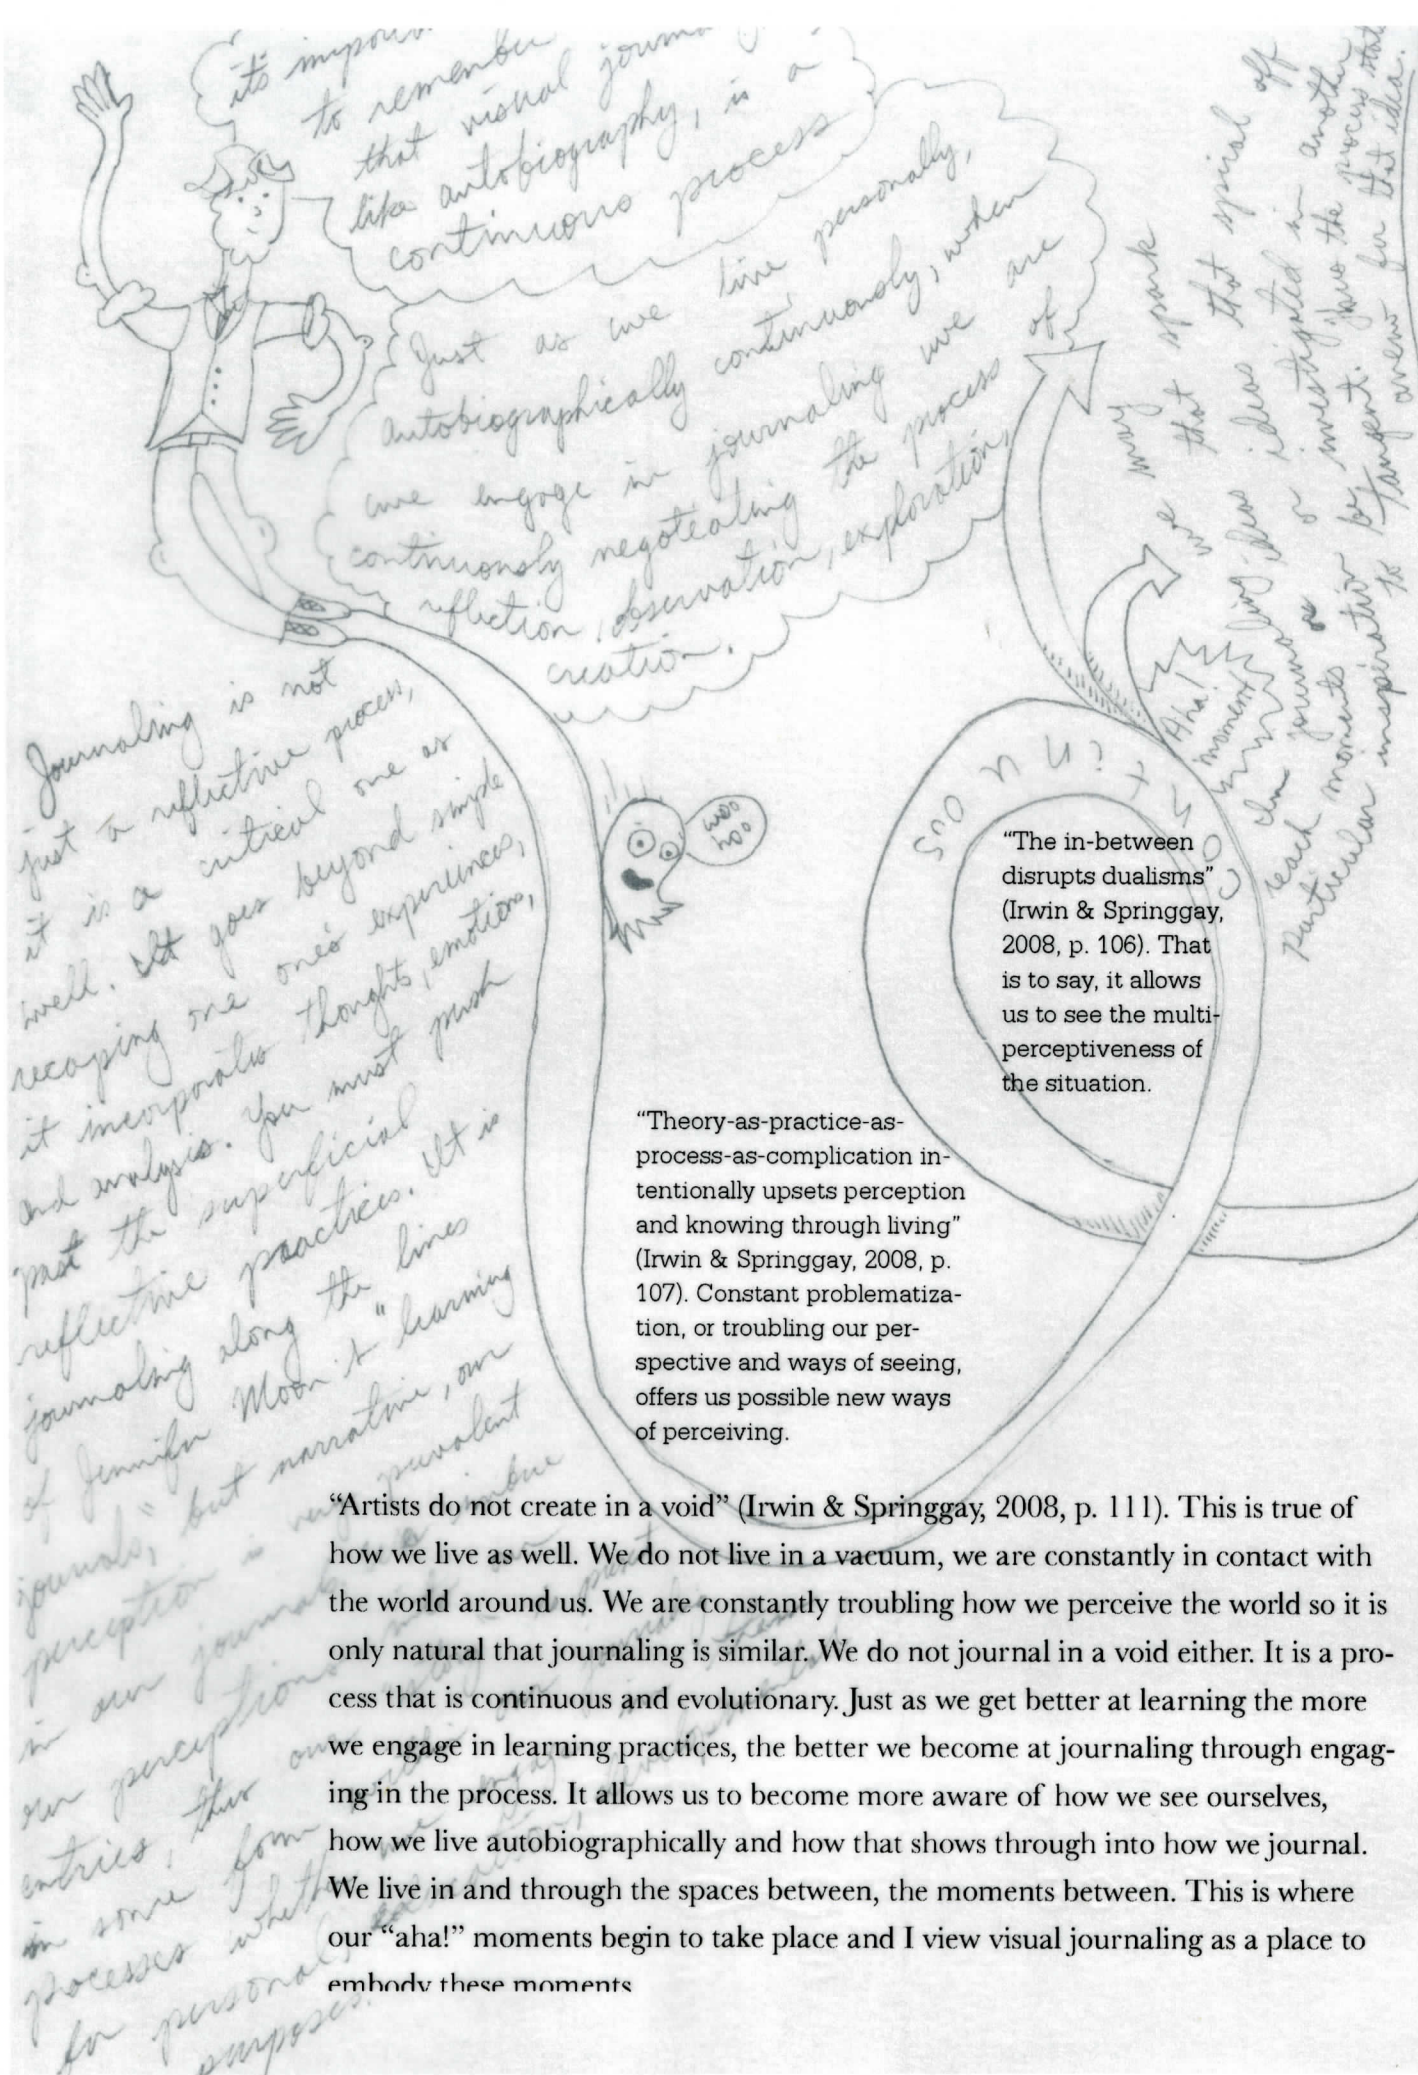 its
to remember
that visual
like autobiography, is a
continuous process
Just as we live personally,
autobiographically continuously, when
we engage in journaling we are
continuously negoteating the process of
reflection, observation, exploration,
creation.
we may spark
that spiral off
ideas
investigated in another
tangent.
inspiration to
for that idea.
Aha!
moment
reach moments
particular
woo
hoo
continuous
Journaling is not
just a reflective process,
it is a critical one as
well. It goes beyond simple
recaping one one's experiences,
it incorporates thoughts, emotions,
and analysis. You must push
past the superficial
reflective practices. It is
journaling along the lines
of Jennifer Moon's "learning
journals," but narrative, our
perception is very prevalent
in our journals
our perceptions
entries, thus our
in some form
processes whether we engage
for personal,
purposes.
"The in-between
disrupts dualisms"
(Irwin & Springgay,
2008, p. 106). That
is to say, it allows
us to see the multi-
perceptiveness of
the situation.
"Theory-as-practice-as-
process-as-complication in-
tentionally upsets perception
and knowing through living"
(Irwin & Springgay, 2008, p.
107). Constant problematiza-
tion, or troubling our per-
spective and ways of seeing,
offers us possible new ways
of perceiving.
"Artists do not create in a void" (Irwin & Springgay, 2008, p. 111). This is true of
how we live as well. We do not live in a vacuum, we are constantly in contact with
the world around us. We are constantly troubling how we perceive the world so it is
only natural that journaling is similar. We do not journal in a void either. It is a pro-
cess that is continuous and evolutionary. Just as we get better at learning the more
we engage in learning practices, the better we become at journaling through engag-
ing in the process. It allows us to become more aware of how we see ourselves,
how we live autobiographically and how that shows through into how we journal.
We live in and through the spaces between, the moments between. This is where
our "aha!" moments begin to take place and I view visual journaling as a place to
embody these moments